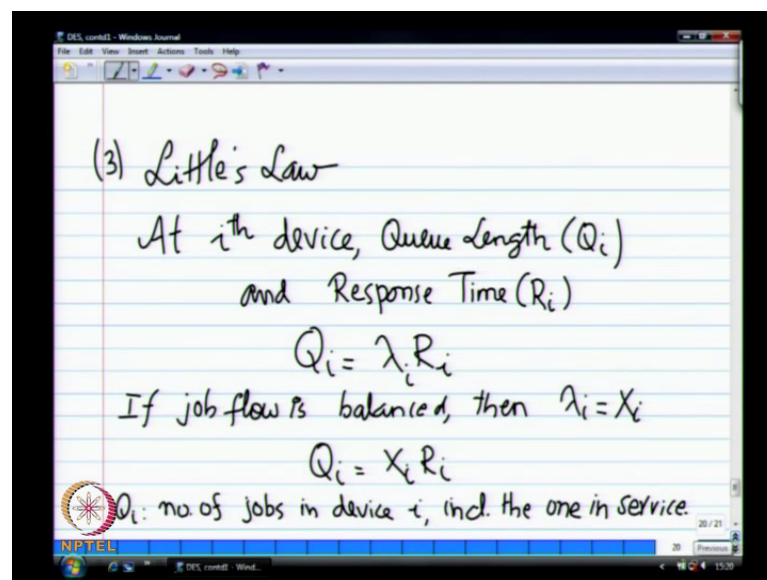 DES, contd1 - Windows Journal
File Edit View Insert Actions Tools Help
(3) Little's Law
At ith device, Queue Length (Qi)
and Response Time (Ri)
Qi = λiRi
If job flow is balanced, then λi = Xi
Qi = Xi Ri
Qi: no. of jobs in device i, incl. the one in service.
20 / 21
NPTEL
20 Previous
DES, contd1 - Wind...
15:20